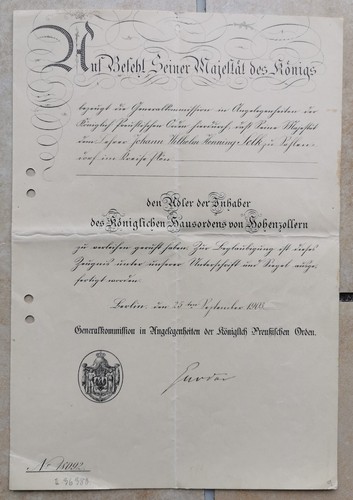 Auf Befehl Seiner Majestät des Königs
bezeugt die Generalkommission in Angelegenheiten der
Königlich Preußischen Orden hierdurch, daß Seine Majestät
dem Lehrer Johann Wilhelm Henning Selk zu
dorf im Kreise
den Adler der Inhaber
des Königlichen Hausordens von Hohenzollern
zu verleihen geruht haben. Zur Beglaubigung ist dieses
Zeugnis unter unserer Unterschrift und Siegel ausge-
fertigt worden.
Berlin, den 25ten September
Generalkommission in Angelegenheiten der Königlich Preußischen Orden.